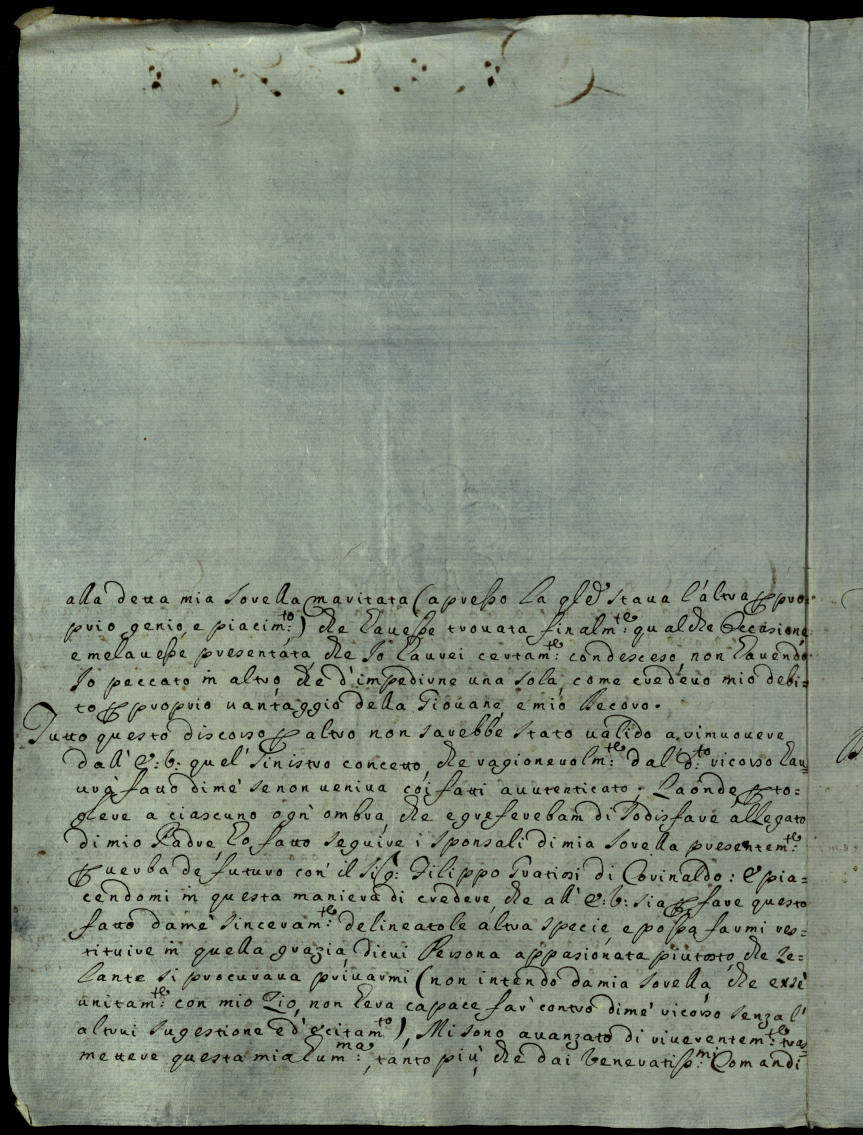 alla detta mia Sorella maritata (apresso la qle staua l'altra p pro=
prio genio, e piacim:to) che hauesse trouata finalm:te qualche Occasione
e melauesse presentata, che Io haurei certam:te condesceso, non hauendo
Io peccato in altro che d'impedirne una sola, come credeuo mio debi=
to p proprio uantaggio della Giouane, e mio Decoro.
Tutto questo discorso p altro non sarebbe stato ualido a rimuouere
dall' E: V: quel' Sinistro concetto, che ragioneuolm:te dal d:to ricorso hau=
urà fatto dime' se non ueniua coi fatti auutenticato; Laonde p to=
gliere a ciascuno ogni ombra che
di mio Padre, ho fatto seguire i sponsali di mia Sorella presentem:te
p uerba de futuro con' il Sig: Filippo Gratiosi di Corinaldo: E pia=
cendomi in questa maniera di credere, che all' E: V: sia p fare questo
fatto dame' sinceram:te delineatole altra specie, e possa farmi res=
tituire in quella grazia, dicui Persona appasionata piutosto, che Ze=
lante si procuraua priuarmi (non intendo da mia Sorella, che
unitam:te con mio Zio, non era capace far' contro dime' ricorso senza l'
altrui sugestione ed' ecitam:to), Mi sono auanzato di riuerentem:te tras=
mettere questa mia hum:ma, tanto più, che dai Veneratiss:mi Comandi